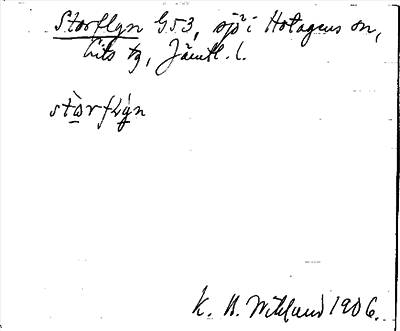 Storflyn G53, sjö i Hotagens sn,
Lits tg, Jämtl. l.
stɷ̀rflýn
K. B. Wiklund 1906.